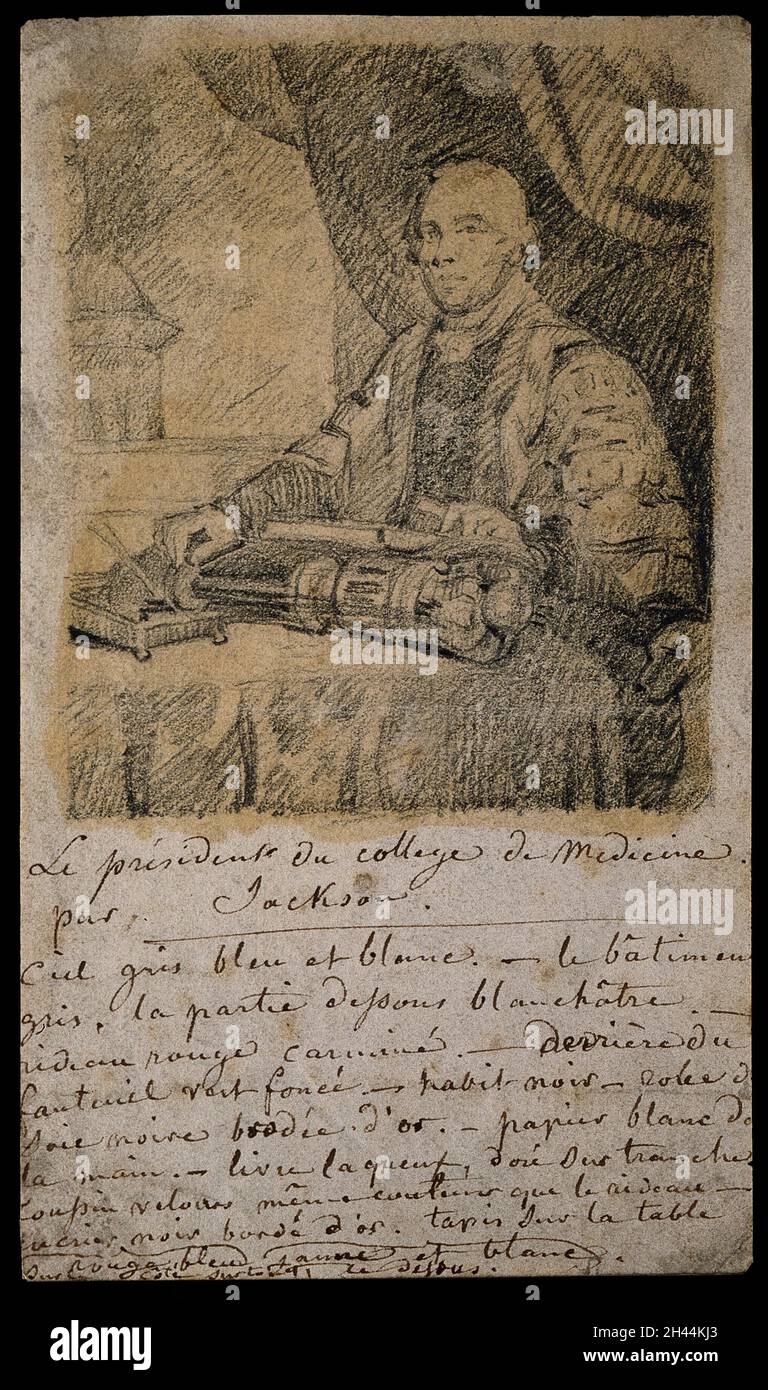 Le président du college de Medicine.
par. Jackson.
Ciel gris bleu et blanc. — le bâtimen
gris, la partie dessous blanchâtre. —
rideau rouge carminé. — derrière du
fauteuil vert foncé — habit noir — robe d
soie noire brodée d'or. — papier blanc da
la main. — livre laqueux, doré sur tranche
coussin velours même couleur que le rideau —
encrier noir bordé d'or. tapis sur la table
rouge bleu jaune et blanc.
ce dessous.
alamy
Image ID: 2H44KJ3
www.alamy.com